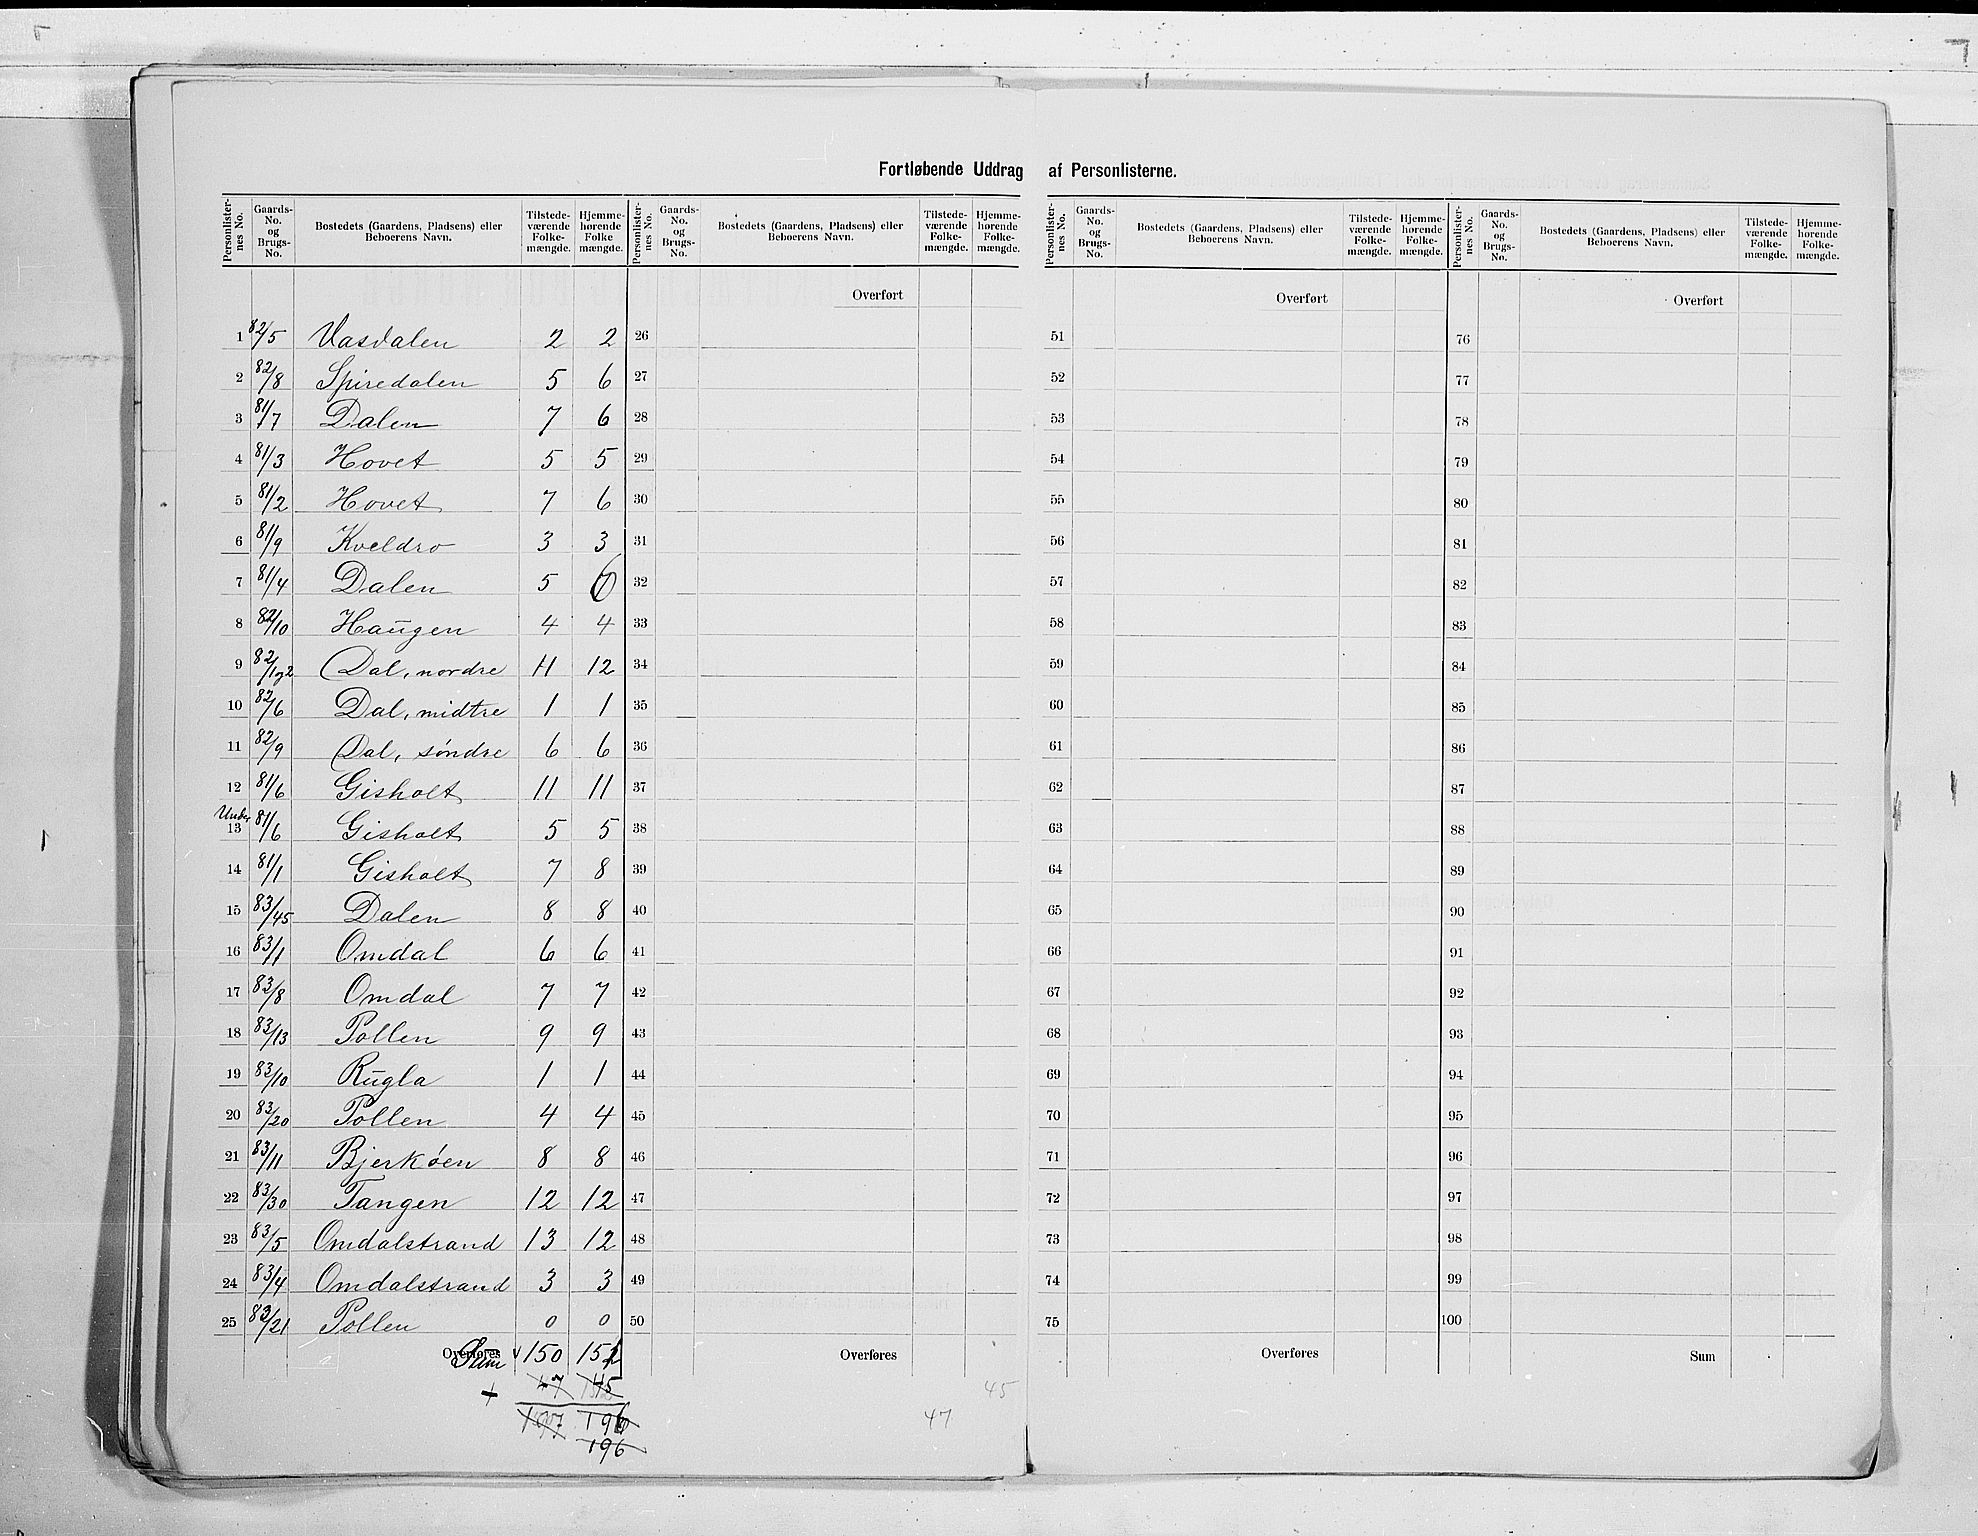 Fortløbende Uddrag af Personlisterne.
Personlister-nes No. | Gaards-No. og Brugs-No. | Bostedets (Gaardens, Pladsens) eller Beboerens Navn. | Tilstede-værende Folke-mængde. | Hjemme-hørende Folke mængde.
Personlister-nes No. | Gaards-No. og Brugs-No. | Bostedets (Gaardens, Pladsens) eller Beboerens Navn. | Tilstede-værende Folke-mængde. | Hjemme-hørende Folke-mængde.
Personlister-nes No. | Gaards-No. og Brugs-No. | Bostedets (Gaardens, Pladsens) eller Beboerens Navn. | Tilstede-værende Folke-mængde. | Hjemme-hørende Folke-mængde.
Personlister-nes No. | Gaards-No. og Brugs-No. | Bostedets (Gaardens, Pladsens) eller Beboerens Navn. | Tilstede-værende Folke-mængde. | Hjemme-hørende Folke-mængde.
Overført Overført Overført
1 82/5 Vasdalen 2 2 26 51 76
2 82/8 Spiredalen 5 6 27 52 77
3 81/7 Dalen 7 6 28 53 78
4 81/3 Hovet 5 5 29 54 79
5 81/2 Hovet 7 6 30 55 80
6 81/9 Kveldro 3 3 31 56 81
7 81/4 Dalen 5 6 32 57 82
8 82/10 Haugen 4 4 33 58 83
9 82/1 og 2 Dal, nordre 11 12 34 59 84
10 82/6 Dal, midtre 1 1 35 60 85
11 82/9 Dal, søndre 6 6 36 61 86
12 81/6 Gisholt 11 11 37 62 87
Under
13 81/6 Gisholt 5 5 38 63 88
14 81/1 Gisholt 7 8 39 64 89
15 83/45 Dalen 8 8 40 65 90
16 83/1 Omdal 6 6 41 66 91
17 83/8 Omdal 7 7 42 67 92
18 83/13 Pollen 9 9 43 68 93
19 83/10 Rugla 1 1 44 69 94
20 83/20 Pollen 4 4 45 70 95
21 83/11 Bjerkøen 8 8 46 71 96
22 83/30 Tangen 12 12 47 72 97
23 83/5 Omdalstrand 13 12 48 73 98
24 83/4 Omdalstrand 3 3 49 74 99
25 83/21 Pollen 0 0 50 75 100
Overføres Sum 150 Overføres Overføres Sum
+ 47 45 45
197 196 47
196